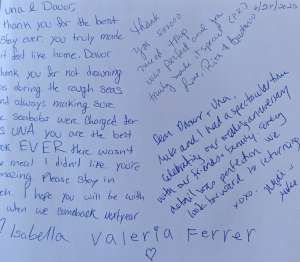 una & Davor,
thank you for the best
stay ever you truly made
it feel like home. Davor
thank you for not drowning
us during the rough seas
and always making sure
the seabobs were charged for
us UNA you are the best
cook EVER there wasn't
a meal I didn't like you're
amazing Please stay in
touch. I hope you will be with
us when we comeback next year
Isabella
Valeria Ferrer
Thank
you
trip
was and you
truly made it special
Love,
Dear Davor + Una,
and I had a spectacular time
celebrating our wedding anniversary
with our friends & family. Every
detail was perfection. We
look forward to returning
xoxo,